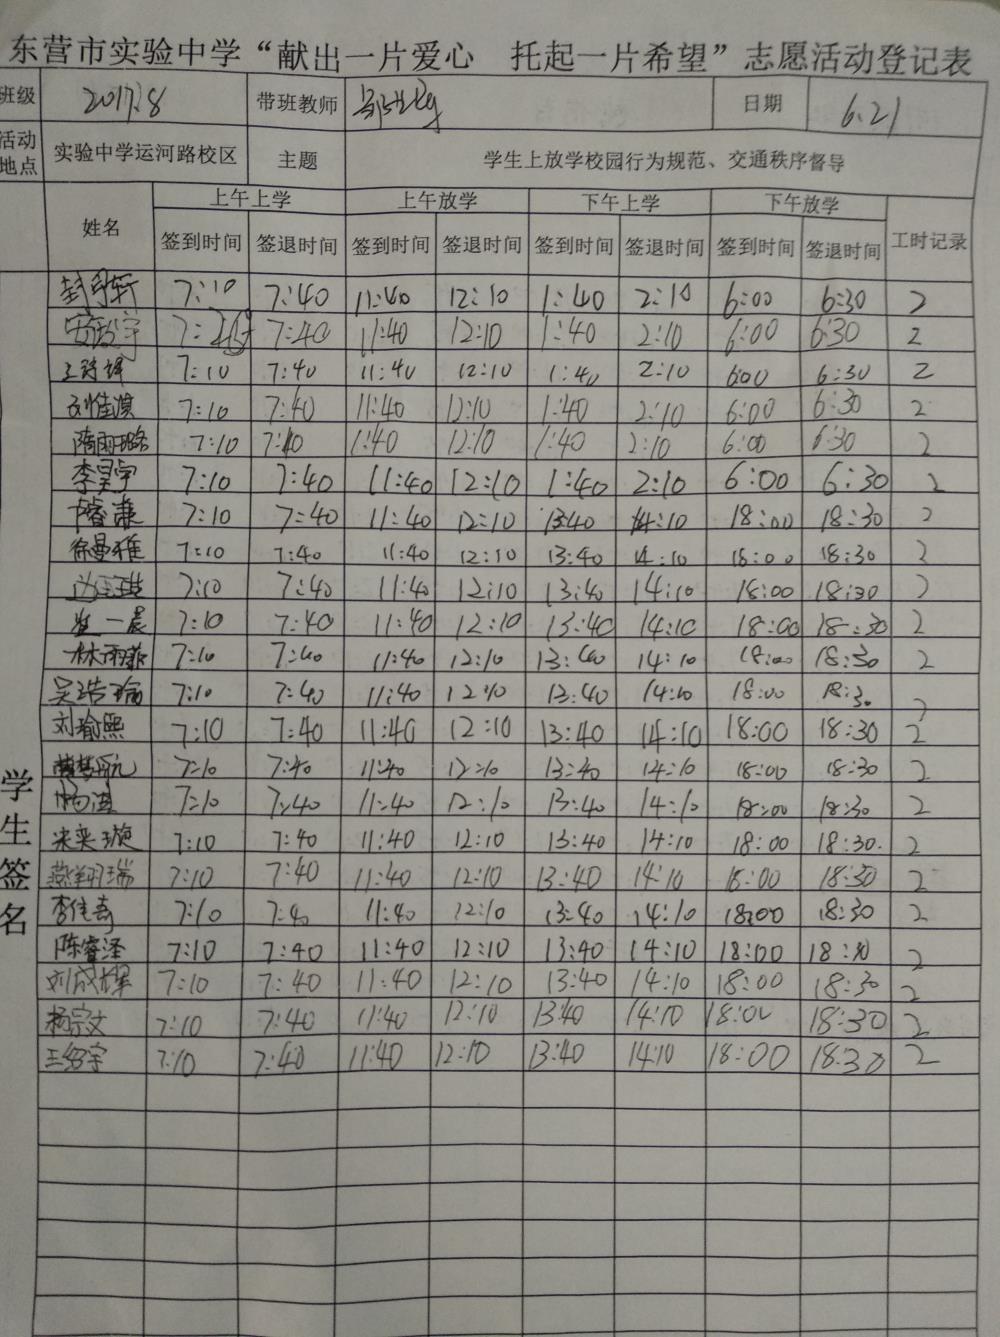 东营市实验中学“献出一片爱心 托起一片希望”志愿活动登记表
班级 2017.8 带班教师 日期 6.21
活动地点 实验中学运河路校区 主题 学生上放学校园行为规范、交通秩序督导
姓名 上午上学 上午放学 下午上学 下午放学 工时记录
签到时间 签退时间 签到时间 签退时间 签到时间 签退时间 签到时间 签退时间
学生签名
7:10 7:40 11:40 12:10 1:40 2:10 6:00 6:30 2
7: 7:40 11:40 12:10 1:40 2:10 6:00 6:30 2
7:10 7:40 11:40 12:10 1:40 2:10 6:00 6:30 2
刘佳淇 7:10 7:40 11:40 12:10 1:40 2:10 6:00 6:30 2
隋雨璐 7:10 7:40 1:40 12:10 1:40 2:10 6:00 6:30 2
李昊宇 7:10 7:40 11:40 12:10 1:40 2:10 6:00 6:30 2
7:10 7:40 11:40 12:10 13:40 14:10 18:00 18:30 2
徐曼雅 7:10 7:40 11:40 12:10 13:40 14:10 18:00 18:30 2
7:10 7:40 11:40 12:10 13:40 14:10 18:00 18:30 2
崔一晨 7:10 7:40 11:40 12:10 13:40 14:10 18:00 18:30 2
林雨菲 7:10 7:40 11:40 12:10 13:40 14:10 18:00 18:30 2
吴浩瑜 7:10 7:40 11:40 12:10 13:40 14:10 18:00 18:30 2
刘瑜熙 7:10 7:40 11:40 12:10 13:40 14:10 18:00 18:30 2
7:10 7:40 11:40 12:10 13:40 14:10 18:00 18:30 2
7:10 7:40 11:40 12:10 13:40 14:10 18:00 18:30 2
宋奕璇 7:10 7:40 11:40 12:10 13:40 14:10 18:00 18:30. 2
燕翔瑞 7:10 7:40 11:40 12:10 13:40 14:10 18:00 18:30 2
李佳奇 7:10 7:40 11:40 12:10 13:40 14:10 18:00 18:30 2
陈睿泽 7:10 7:40 11:40 12:10 13:40 14:10 18:00 18:30 2
刘成辉 7:10 7:40 11:40 12:10 13:40 14:10 18:00 18:30 2
杨宗文 7:10 7:40 11:40 12:10 13:40 14:10 18:00 18:30 2
王绍宇 7:10 7:40 11:40 12:10 13:40 14:10 18:00 18:30 2